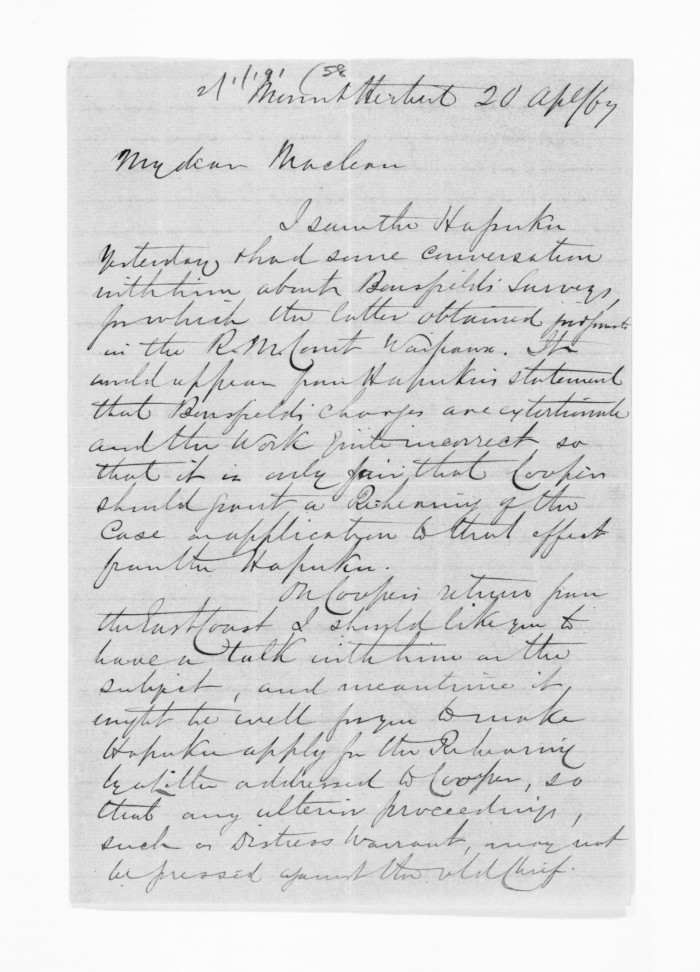 (58
Mount Herbert 20 Apl/67
My dear Maclean
I saw the Hapuku
Yesterday, & had some conversation
with him about Bousfield's Surveys,
for which the latter obtained judgmt
in the R. M. Court Waipawa. It
would appear from Hapuku's statement
that Bousfield's charges are extortionate
and the Work quite incorrect so
that it is only fair that Cooper
should grant a Rehearing of the
Case on application to that effect
from the Hapuku.
On Cooper's return from
the East Coast I should like you to
have a talk with him on the
subject, and meantime it
might be well for you to make
Hapuku apply for the Rehearing
by a letter addressed to Cooper, so
that any ulterior proceedings,
such as Distress Warrant, may not
be pressed against the old Chief.